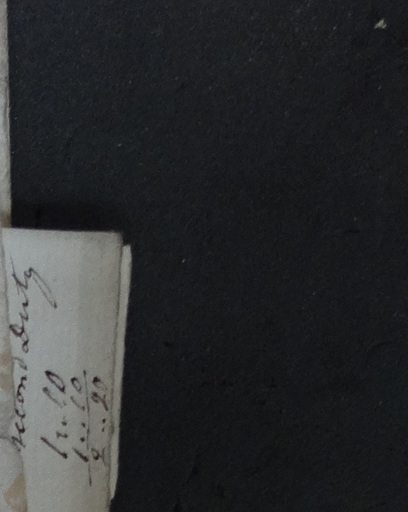 second Duty
1..10
1..10
2..20